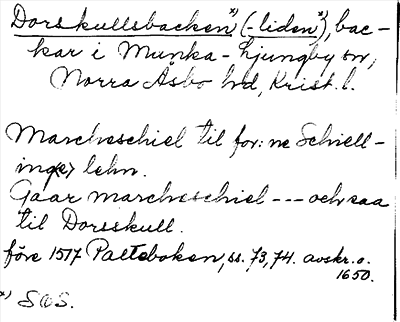 Dorskullsbacken*) (-liden*), bac-
kar i Munka-Ljungby sn,
Norra Åsbo hd, Krist. l.
Marcheschiel til for:ne Schiell-
ing(e) lehn.
Gaar marcheschiel --- och saa
til Dorsskull.
före 1517 Palteboken, ss. 73, 74. avskr. o.
1650.
*) SOS.